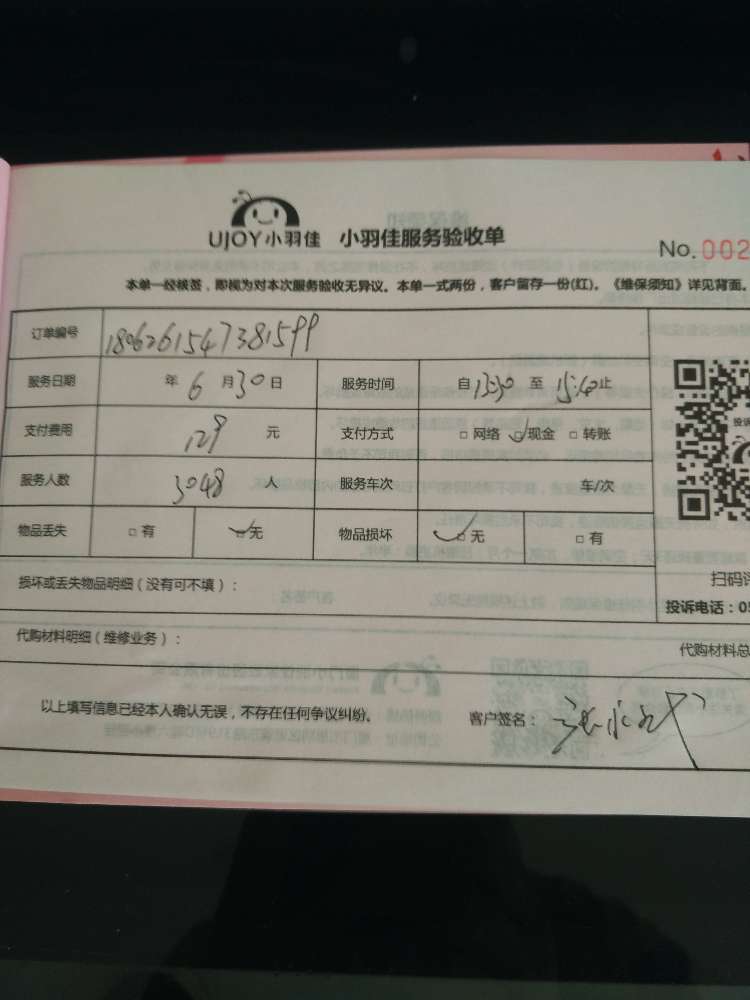 UJOY小羽佳 小羽佳服务验收单
No.002
本单一经核签，即视为对本次服务验收无异议。本单一式两份，客户留存一份(红)。《维保须知》详见背面。
订单编号 1806261547381599
服务日期 年 6 月 30 日 服务时间 自 13:30 至 15:40 止
支付费用 129 元 支付方式 □ 网络 □ 现金 □ 转账
服务人数 3048 人 服务车次 车/次
物品丢失 □ 有 □ 无 物品损坏 □ 无 □ 有
损坏或丢失物品明细（没有可不填）：
扫码评
投诉电话：05
代购材料明细（维修业务）：
代购材料总
以上填写信息已经本人确认无误，不存在任何争议纠纷。 客户签名：